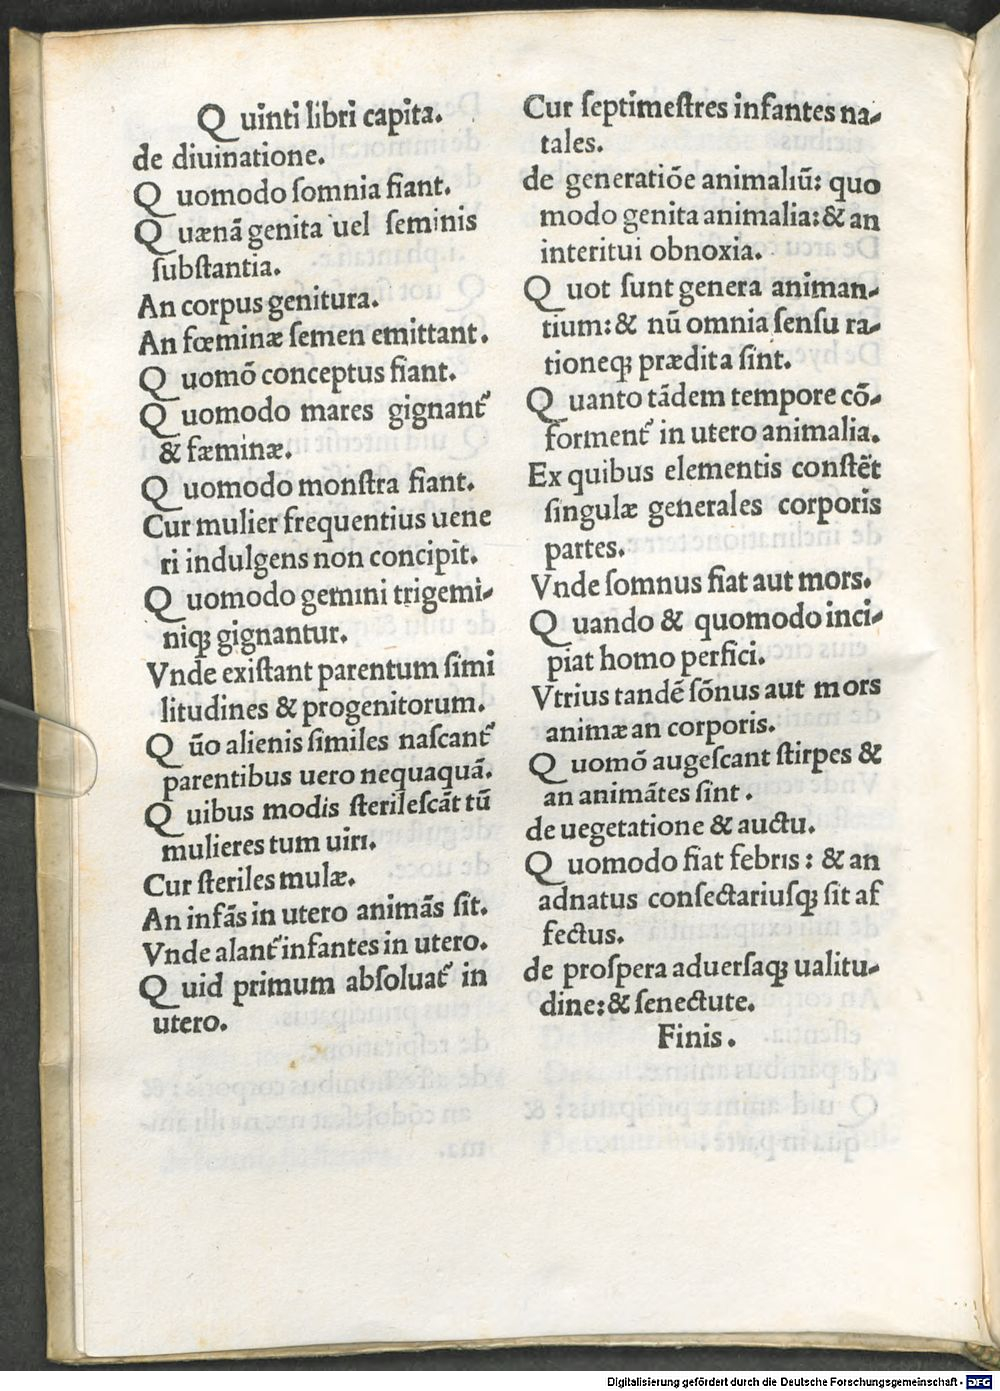 Quinti libri capita.
de diuinatione.
Quomodo somnia fiant.
Quænā genita uel seminis
substantia.
An corpus genitura.
An fœminæ semen emittant.
Quomō conceptus fiant.
Quomodo mares gignant᷑
& fæminæ.
Quomodo monstra fiant.
Cur mulier frequentius uene
ri indulgens non concipit.
Quomodo gemini trigemi-
niqꝫ gignantur.
Vnde existant parentum simi
litudines & progenitorum.
Quō alienis similes nascant᷑
parentibus uero nequaquā.
Quibus modis sterilescāt tū
mulieres tum uiri.
Cur steriles mulæ.
An infās in utero animās sit.
Vnde alant᷑ infantes in utero.
Quid primum absoluat᷑ in
utero.
Cur septimestres infantes na-
tales.
de generatiōe animaliū: quo
modo genita animalia: & an
interitui obnoxia.
Quot sunt genera animan-
tium: & nū omnia sensu ra-
tioneqꝫ prædita sint.
Quanto tādem tempore cō-
forment᷑ in utero animalia.
Ex quibus elementis constēt
singulæ generales corporis
partes.
Vnde somnus fiat aut mors.
Quando & quomodo inci-
piat homo perfici.
Vtrius tandē sōnus aut mors
animæ an corporis.
Quomō augescant stirpes &
an animātes sint.
de uegetatione & auctu.
Quomodo fiat febris: & an
adnatus consectariusqꝫ sit af
fectus.
de prospera aduersaqꝫ ualitu-
dine: & senectute.
Finis.
Digitalisierung gefördert durch die Deutsche Forschungsgemeinschaft - DFG